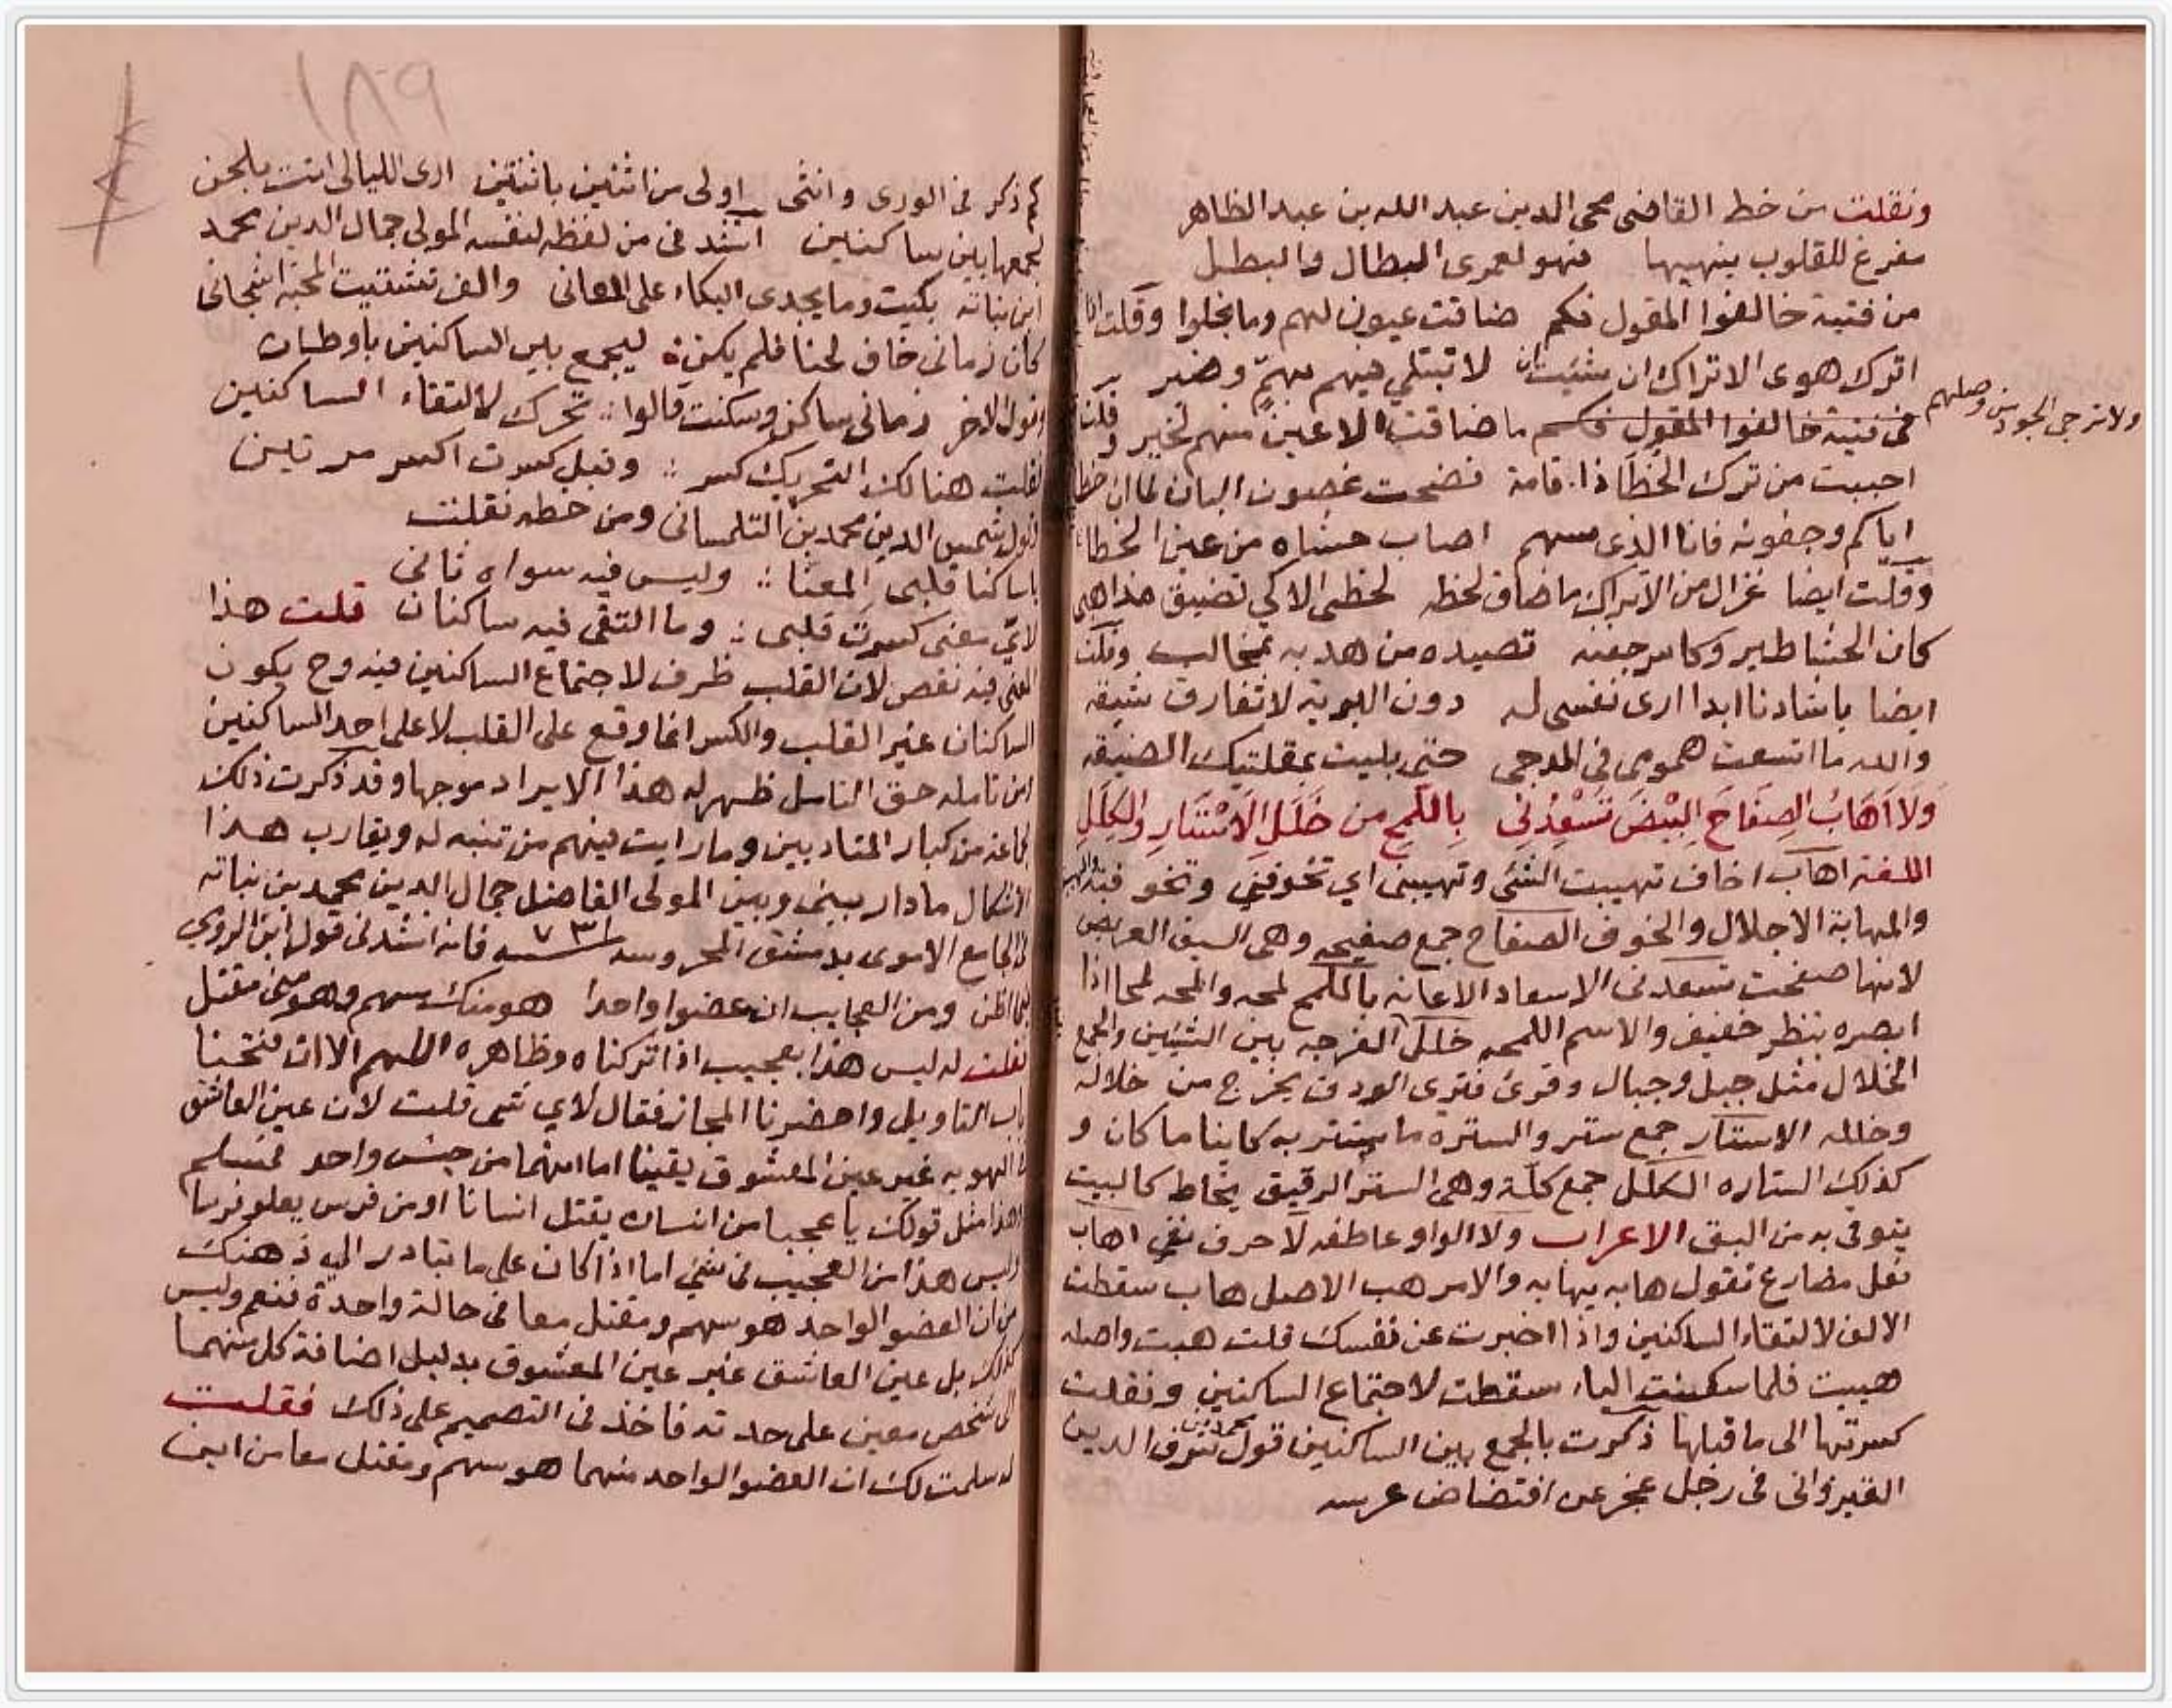 ونقلت من خط القاضى محى الدين عبد الله بن عبد الظاهر
مفرغ للقلوب ينهبها فهو لعمرى البطال والبطل
من فتية خالفوا المقول فكم ضاقت عيون لهم وما بخلوا وقلت انا
اترك هوى الاتراك ان شئت ان لا تبتلى فيهم بهمّ وضير
ولا ترجى الجود من وصلهم
ما ضاقت الاعين منهم لخير وقلت
احببت من ترك الخطا ذا قامة فضحت غصون البان لما ان خطا
اياكم وجفونه فانا الذى سهم اصاب حشاه من عين الخطا
وقلت ايضا غزال من الاتراك ما ضاق لحظه لحظى الا كى تضيق مذاهبى
كان الحشا طير وكاسر جفنه تصيده من هدبه بمخالب وقلت
ايضا يا شادنا ابدا ارى نفسى له دون البرية لا تفارق شيقه
والله ما اتسعت همومى فى الدجى حتى بليت بمقلتيك الضيقه
ولا اهاب الصفاح البيض تسعدنى باللمح من خلل الاستار والكلل
اللغة اهاب اخاف تهيبت الشئ وتهيبنى اي تخوفني
والمهابة الاجلال والخوف الصفاح جمع صفيحه وهى السيف العريض
لانها صفحت تسعدنى الاسعاد الاعانه باللمح لمحه والمحه لمحا اذا
ابصره بنظر خفيف والاسم اللمحه خلل الفرجه بين الشيئين والجمع
الخلال مثل جبل وجبال وقرئ فترى الودق يخرج من خلاله
وخلله الاستار جمع ستر والستره ما يستتر به كاينا ما كان و
كذلك الستاره الكلل جمع كلّة وهى الستر الرقيق يخاط كالبيت
يتوقى به من البق الاعراب ولا الواو عاطفه لا حرف نفى اهاب
فعل مضارع تقول هابه يهابه والامر هب الاصل هاب سقطت
الالف لالتقاء الساكنين واذا اخبرت عن نفسك قلت هبت واصله
هيبت فلما سكنت الياء سقطت لاجتماع الساكنين ونقلت
كسرتها الى ما قبلها ذكرت بالجمع بين الساكنين قول محمد بن شرف الدين
القيروانى فى رجل عجز عن افتضاض عرسه
١٨٩
كم ذكر فى الورى وانثى اولى من اثنين باثنتين ارى الليالى اتت بلحن
لجمعها بين ساكنين انشدنى من لفظه لنفسه المولى جمال الدين محمد
ابن نباته بكيت وما يجدى البكاء على العانى
كان زمانى خاف لحنا فلم يكن ليجمع بين الساكنين باوطان
وقول الاخر زمانى ساكن وسكنت قالوا تحرك لالتقاء الساكنين
فقلت هنالك التحريك كسر وقبل كسرت اكسر مرتين
قول شمس الدين محمد بن التلمسانى ومن خطه نقلت
يا ساكنا قلبى المعنا وليس فيه سواه ثانى
لايّ معنى كسرت قلبى وما التقى فيه ساكنان قلت هذا
المعنى فيه نقص لان القلب ظرف لاجتماع الساكنين فيه وح يكون
الساكنان غير القلب والكسر انما وقع على القلب لا على احد الساكنين
من تامله حق التامل ظهر له هذا الايراد موجها وقد ذكرت ذلك
لجماعة من كبار المتادبين وما رايت فيهم من تنبه له ويقارب هذا
الاشكال ما دار بينى وبين المولى الفاضل جمال الدين محمد بن نباته
فى الجامع الاموى بدمشق المحروسه سنة ٧٣١ فانه انشدنى قول ابن الرومى
فيما اظن ومن العجايب ان عضوا واحدا هو منك سهم وهو منى مقتل
فقلت له ليس هذا بعجيب اذا تركناه وظاهره اللهم الا ان فتحنا
باب التاويل واحضرنا المجاز فقال لاي شى قلت لان عين العاشق
فى الهويه غير عين المعشوق يقينا اما انهما من جنس واحد فمسلم
وهذا مثل قولك يا عجبا من انسان يقتل انسانا او من فرس يعلو فرسا
وليس هذا من العجيب فى شئ اما اذا كان على ما تبادر الى ذهنك
من ان العضو الواحد هو سهم ومقتل معا فى حالة واحدة فنعم وليس
كذلك بل عين العاشق غير عين المعشوق بدليل اضافة كل منهما
الى شخص معين على حدته فاخذ فى التصميم على ذلك فقلت
له سلمت لك ان العضو الواحد منهما هو سهم ومقتل معا من اين